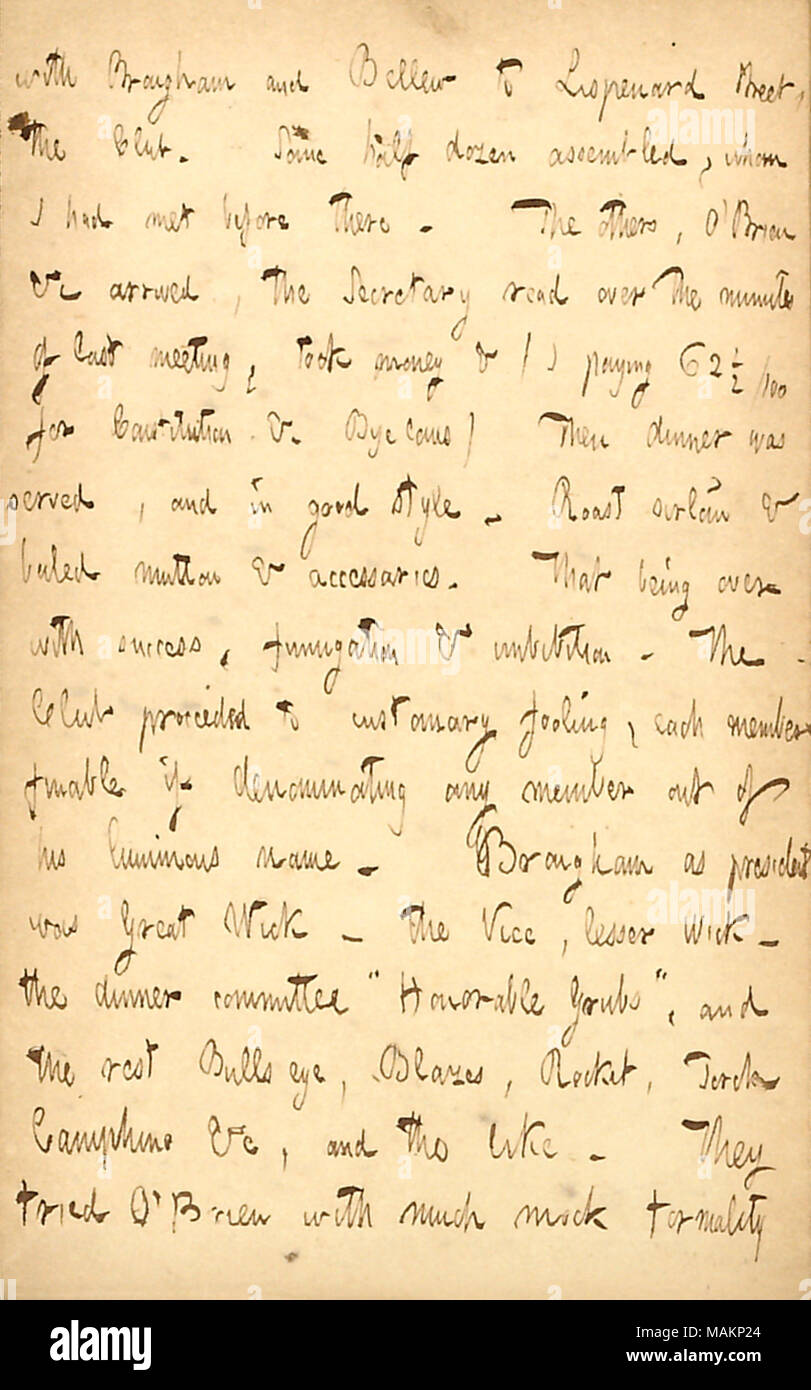 with Brougham and Bellew to Lispenard street,
the Club. Some half dozen assembled, whom
I had met before there. The others, O'Brien
&c arrived, the Secretary read over the minutes
of last meeting, took money & (I paying 62 ½/100
for Constitution & Bye laws) Then dinner was
served, and in good style. Roast sirloin &
boiled mutton & accessaries. That being over
with success, fumigation & imbibition. The
Club proceeded to customary fooling, each member
finable if denominating any member out of
his luminous name. Brougham as president
was Great Wick — the Vice, lesser Wick —
the dinner committee "Honorable Grubs", and
the rest Bulls eye, Blazes, Rocket, Torch
Camphine &c, and the like. They
tried O'Brien with much mock formality
alamy
Image ID: MAKP24
www.alamy.com